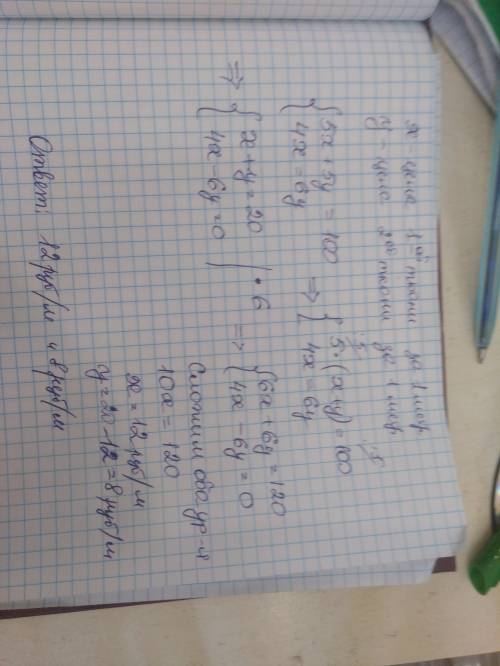 x - цена 1ой ткани за 1 метр
y - цена 2ой ткани за 1 метр
{ 5x + 5y = 100
4x = 6y
=> { 5·(x+y) = 100 | :5
4x = 6y
=> { x + y = 20 | · 6
4x - 6y = 0
=> { 6x + 6y = 120
4x - 6y = 0
Сложим оба ур-я
10x = 120
x = 12 руб/м
y = 20 - 12 = 8 руб/м
Ответ: 12 руб/м и 8 руб/м